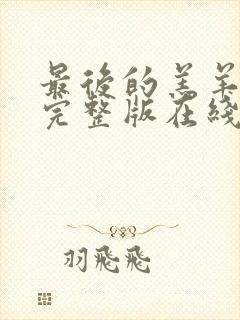 最後的羔羊
完整版在綫
羽飛飛